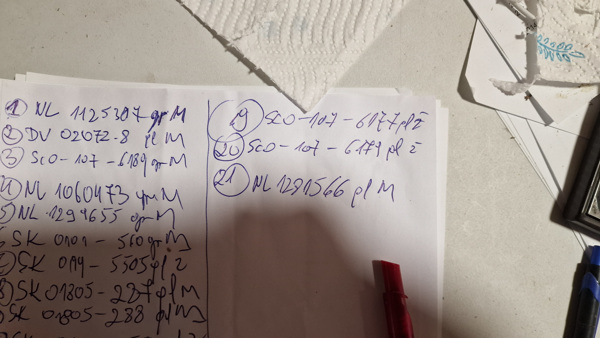 1 NL 1125307 gr M
2 DV 02072-8 pl M
3 SCO-107-6189 gr M
4 NL 1060473 gr M
5 NL 1294655 gr M
6 SK 0101-560 gr M
7 SK 0114-5505 pl ž
8 SK 01805-287 pl M
SK 01805-288 pl M
19 SCO-107-6177 pl ž
20 SCO-107-6179 pl ž
21 NL 1291566 pl M